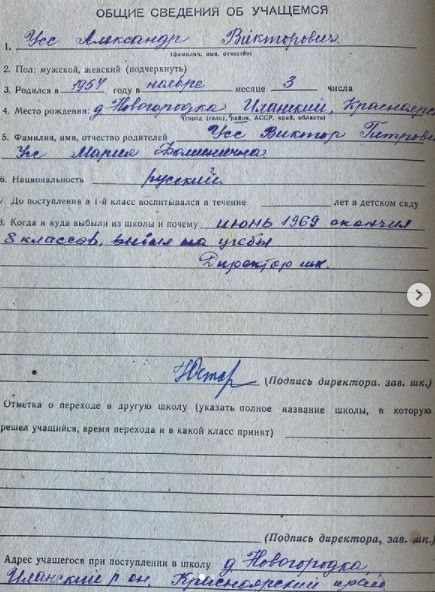 ОБЩИЕ СВЕДЕНИЯ ОБ УЧАЩЕМСЯ
1. Усс Александр Викторович
(фамилия, имя, отчество)
2. Пол: мужской, женский (подчеркнуть)
3. Родился в 1954 году в ноябре месяце 3 числа
4. Место рождения: д Новогородка Иланский, Красноярс
(город (село), район, АССР, край, область)
5. Фамилия, имя, отчество родителей Усс Виктор Питрови
Усс Мария
6. Национальность русский
7. До поступления в 1-й класс воспитывался в течение лет в детском саду
8. Когда и куда выбыли из школы и почему июнь 1969 окончил
8 классов, выбыл на учебы
Директор шк.
(Подпись директора, зав. шк.)
Отметка о переходе в другую школу (указать полное название школы, в которую
решел учащийся, время перехода и в какой класс принят)
(Подпись директора, зав. шк.)
Адрес учащегося при поступлении в школу д Новогородка
Иланский р он, Красноярский край